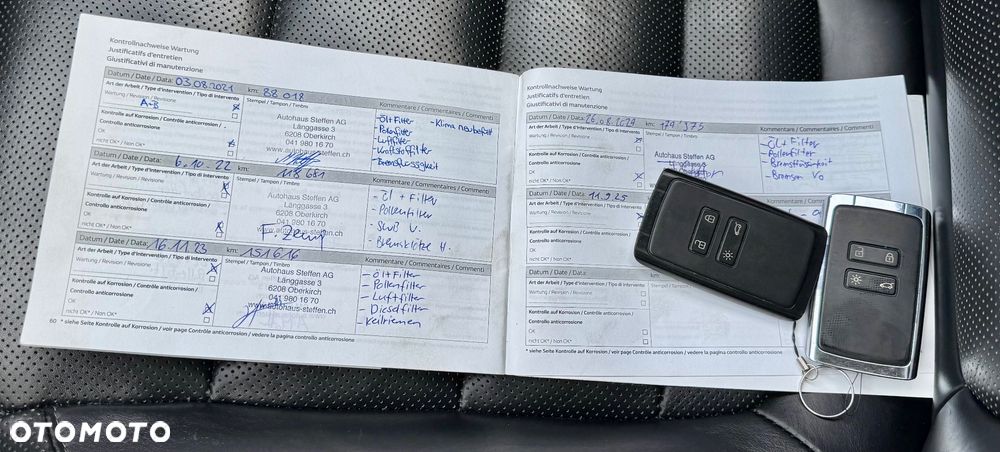 Kontrollnachweise Wartung
Justificatifs d'entretien
Giustificativi di manutenzione
Datum / Date / Data: 03.08.2021 km: 88 018
Art der Arbeit / Type d'intervention / Tipo di intervento
Stempel / Tampon / Timbro
Kommentare / Commentaires / Commenti
Wartung / Revision / Revisione
A-B
Kontrolle auf Korrosion / Contrôle anticorrosion /
Controllo anticorrosione
OK
nicht OK* / Non OK*
Autohaus Steffen AG
Länggasse 3
6208 Oberkirch
041 980 16 70
www.autohaus-steffen.ch
- Öl + Filter - Klima neu befüllt
- Pollenfilter
- Luftfilter
- Kraftstofffilter
- Bremsflüssigkeit
Datum / Date / Data: 6.10.22 km: 118 681
Art der Arbeit / Type d'intervention / Tipo di intervento
Stempel / Tampon / Timbro
Kommentare / Commentaires / Commenti
Wartung / Revision / Revisione
Kontrolle auf Korrosion / Contrôle anticorrosion /
Controllo anticorrosione
OK
nicht OK* / Non OK*
Autohaus Steffen AG
Länggasse 3
6208 Oberkirch
041 980 16 70
- Öl + Filter
- Pollenfilter
- V.
- Bremsklötze H.
Datum / Date / Data: 16.11.23 km: 151616
Art der Arbeit / Type d'intervention / Tipo di intervento
Stempel / Tampon / Timbro
Kommentare / Commentaires / Commenti
Wartung / Revision / Revisione
Kontrolle auf Korrosion / Contrôle anticorrosion /
Controllo anticorrosione
OK
nicht OK* / Non OK*
Autohaus Steffen AG
Länggasse 3
6208 Oberkirch
041 980 16 70
www.autohaus-steffen.ch
- Öl + Filter
- Pollenfilter
- Luftfilter
- Dieselfilter
- Keilriemen
60 * siehe Seite Kontrolle auf Korrosion / voir page Contrôle anticorrosion / vedere la pagina controllo anticorrosione
Kontrollnachweise Wartung
Justificatifs d'entretien
Giustificativi di manutenzione
Datum / Date / Data: km:
Art der Arbeit / Type d'intervention / Tipo di intervento
Stempel / Tampon / Timbro
Kommentare / Commentaires / Commenti
Wartung / Revision / Revisione
Kontrolle auf Korrosion / Contrôle anticorrosion /
Controllo anticorrosione
OK
nicht OK* / Non OK*
Autohaus Steffen AG
- Öl + Filter
- Pollenfilter
- Bremsflüssigkeit
- Bremsen Vo
Datum / Date / Data: 11.9.25
Art der Arbeit / Type d'intervention / Tipo di intervento
Wartung / Revision / Revisione
Kontrolle auf Korrosion / Contrôle anticorrosion /
Controllo anticorrosione
OK
nicht OK* / Non OK*
Datum / Date / Data: km:
Art der Arbeit / Type d'intervention / Tipo di intervento
Stempel / Tampon / Timbro
Wartung / Revision / Revisione
Kontrolle auf Korrosion / Contrôle anticorrosion /
Controllo anticorrosione
OK
nicht OK* / Non OK*
* siehe Seite Kontrolle auf Korrosion / voir page Contrôle anticorrosion / vedere la pagina controllo anticorrosione
OTOMOTO